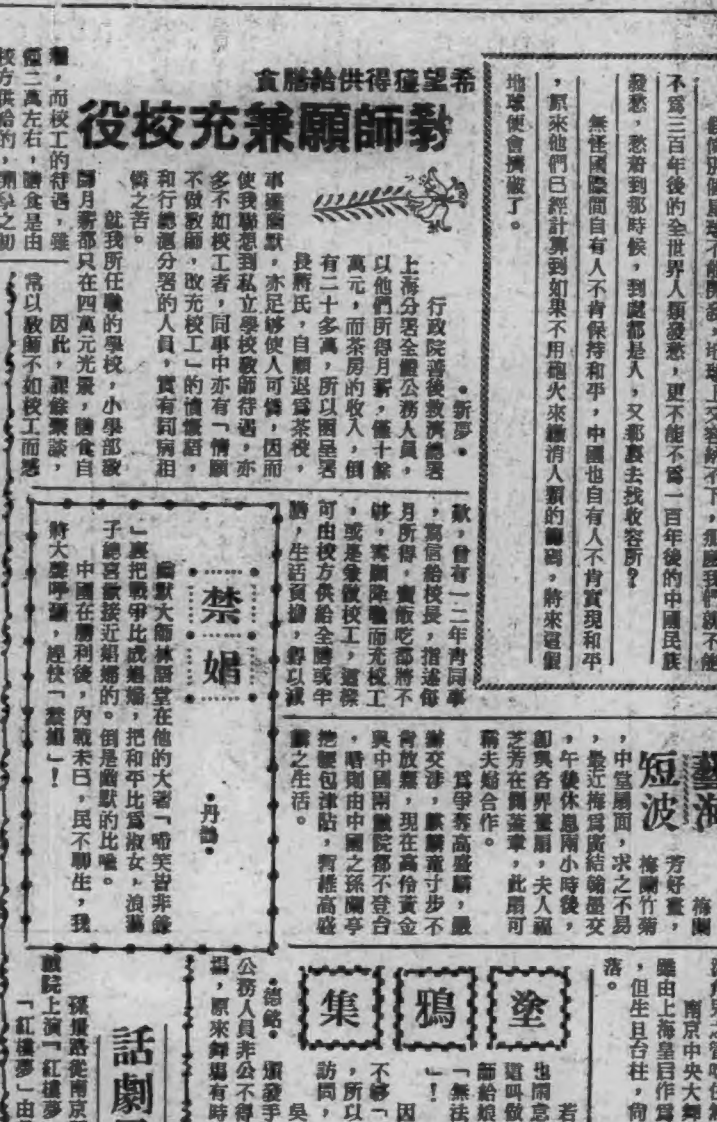 不爲三百年後的全世界人類發愁，更不能不爲一百年後的中國民族
發愁，愁着到那時候，到處都是人，又都裏去找收容所？
無怪國際間自有人不肯保持和平，中國也自有人不肯實現和平
，原來他們已經計算到如果不用砲火來
地球便會擠破了。
希望獲得供給膳食
教師願兼充校役
•新夢•
行政院善後救濟總署
上海分署全體公務人員，
以他們所得月薪，僅十餘
萬元，而茶房的收入，倒
有二十多萬，所以囤呈署
長蔣氏，自願退爲茶役，
事雖幽默，亦足够使人可憐，因而
使我聯想到私立學校教師待遇，亦
多不如校工者，同事中亦有「情願
不做教師，改充校工」的憤慨語，
和行總滬分署的人員，實有同病相
憐之苦。
就我所任職的學校，小學部教
師月薪都只在四萬元光景，膳食自
，而校工的待遇，雖
僅二萬左右，膳食是由
校方供給的，開學之初
因此，課餘聚談，
常以教師不如校工而感
歎，曾有一二年青同事
，寫信給校長，指述每
月所得，實飯吃都將不
够，寧願降職而充校工
，或是兼做校工，這樣
可由校方供給全膳或半
膳，生活負擔，得以減
禁娼
•丹
幽默大師林語堂在他的大著「啼笑皆非錄
」裏把戰爭比成娼婦，把和平比爲淑女，浪蕩
子總喜歡接近娼婦的。倒是幽默的比喻。
中國在勝利後，內戰未已，民不聊生，我
將大聲呼籲，趕快「禁娼」！
藝海
短波
梅蘭
芳好畫，
梅蘭竹菊
，中堂扇面，求之不易
，最近梅爲廣結翰墨交
，午後休息兩小時後，
卽與各界畫扇，夫人福
芝芳在側蓋章，此扇可
稱夫婦合作。
爲爭奪高盛麟，嚴
辦交涉，麒麟童寸步不
肯放鬆，現在高伶黃金
與中國兩戲院都不登台
，唱則由中國之孫蘭亭
把腰包津貼，暫維高盛
麟之生活。
南京中央大舞
雖由上海皇后作爲
，但生旦台柱，尙
落。
塗鴉集
若
也鬧意
這叫做
師給娘
「無法
」！
因
不够「
，所以
訪問，
吳
•德銘•
頒發手
公務人員非公不得
場，原來舞場有時
話劇
孫景路從南京
戲院上演「紅樓夢
「紅樓夢」由